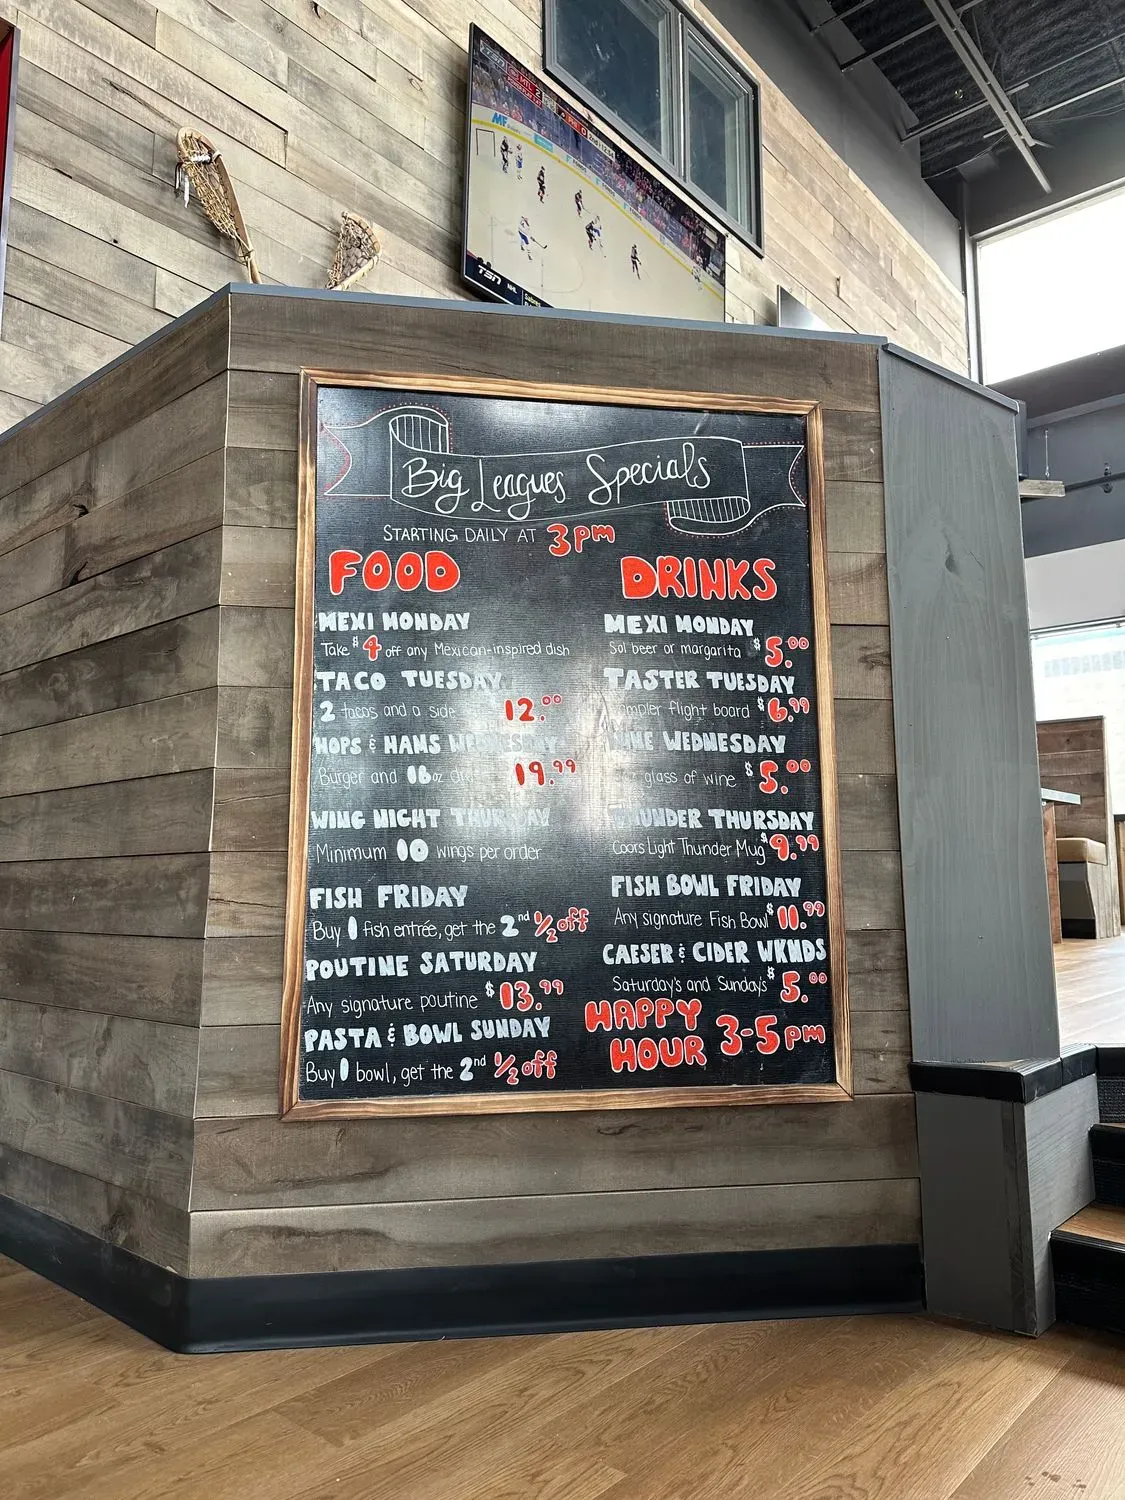 Big Leagues Specials
STARTING DAILY AT 3pm
FOOD
MEXI MONDAY
Take $4 off any Mexican-inspired dish
TACO TUESDAY
2 tacos and a side 12.00
HOPS & HANS WEDNESDAY
Burger and 16oz 19.99
WING NIGHT THURSDAY
Minimum 10 wings per order
FISH FRIDAY
Buy 1 fish entrée, get the 2nd 1/2 off
POUTINE SATURDAY
Any signature poutine $13.99
PASTA & BOWL SUNDAY
Buy 1 bowl, get the 2nd 1/2 off
DRINKS
MEXI MONDAY
Sol beer or margarita $5.00
TASTER TUESDAY
flight board $6.99
WEDNESDAY
glass of wine $5.00
THUNDER THURSDAY
Coors Light Thunder Mug $9.99
FISH BOWL FRIDAY
Any signature Fish Bowl $11.99
CAESER & CIDER WKNDS
Saturday's and Sunday's $5.00
HAPPY
HOUR 3-5pm
TSN
NHL